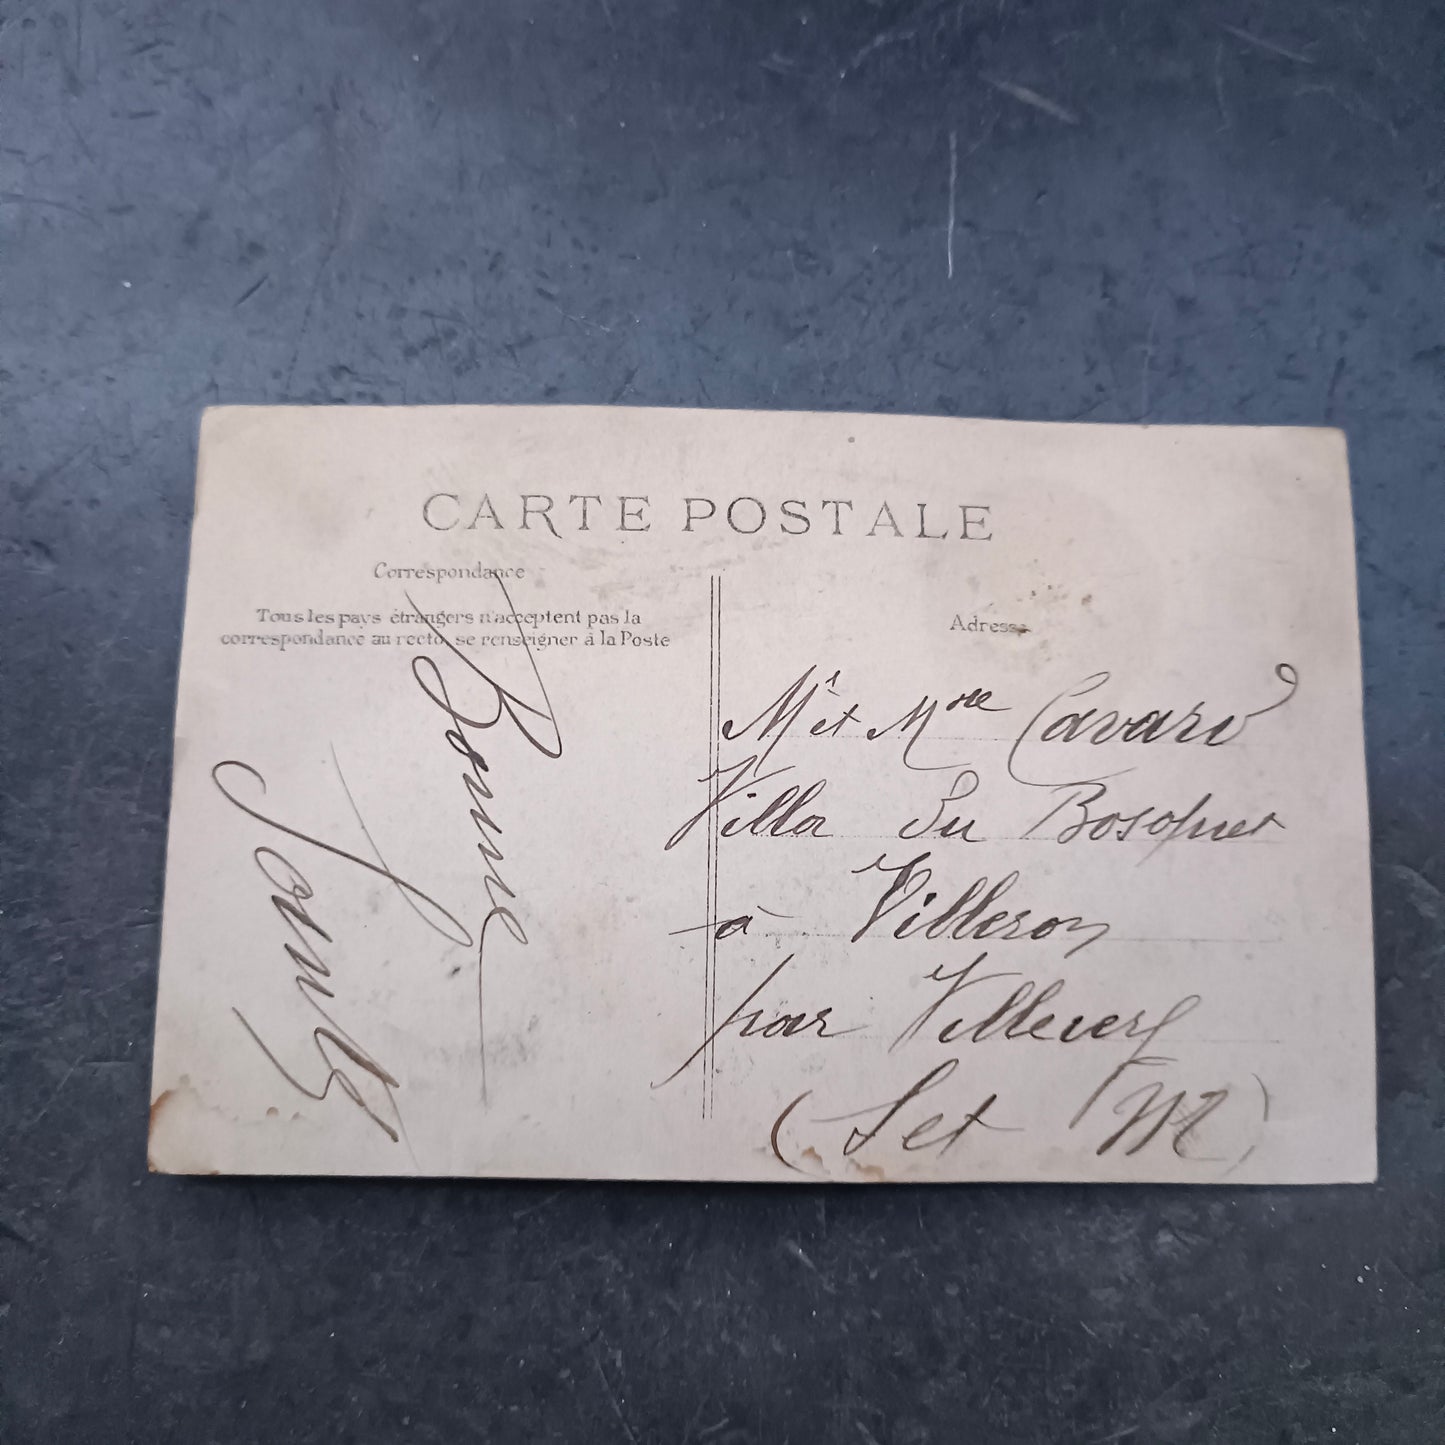 CARTE POSTALE
Correspondance
Tous les pays étrangers n'acceptent pas la
correspondance au recto, se renseigner à la Poste
Adresse
Bonne
Santé
Mr et Mme Cavard
Villa du Bosquet
à Villeron
par
(S et M)